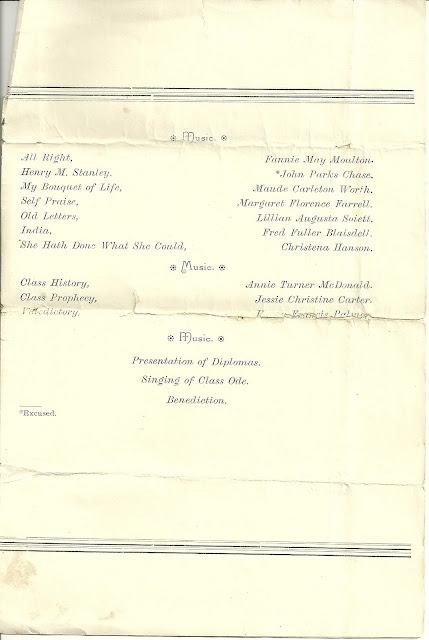 Music.
All Right, Fannie May Moulton.
Henry M. Stanley. *John Parks Chase.
My Bouquet of Life, Maude Carleton Worth.
Self Praise, Margaret Florence Farrell.
Old Letters, Lillian Augusta Soiett.
India, Fred Fuller Blaisdell.
She Hath Done What She Could, Christena Hanson.
Music.
Class History, Annie Turner McDonald.
Class Prophecy, Jessie Christine Carter.
Valedictory. Francis Palmer.
Music.
Presentation of Diplomas.
Singing of Class Ode.
Benediction.
*Excused.